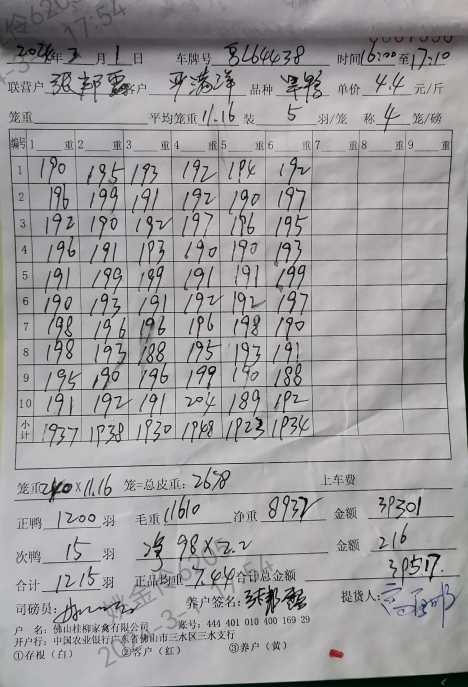 2024年3月1日 车牌号 64438 时间16:00至17:10
联营户 张邦 客户 品种 单价 4.4 元/斤
笼重 平均笼重11.16 装 5 羽/笼 称 4 笼/磅
编号 1 重 2 重 3 重 4 重 5 重 6 重 7 重 8 重 9 重
1 190 195 193 192 194 192
2 196 199 191 192 190 197
3 192 190 192 197 196 195
4 196 191 193 190 190 193
5 191 199 199 191 191 199
6 190 193 191 192 192 197
7 198 196 196 196 198 190
8 198 193 188 195 193 191
9 195 190 196 199 190 188
10 191 192 191 204 189 192
小计 1937 1938 1930 1948 1923 1934
笼重240×11.16 笼=总皮重:2678 上车费
正鸭 1200 羽 毛重 11610 净重 8932 金额 39301
次鸭 15 羽 净 98×2.2 金额 216
合计 1215 羽 正品均重 7.44 合计总金额 39517.
司磅员: 养户签名: 张邦 提货人:
户 名:佛山桂柳家禽有限公司 账号:444 401 010 400 169 29
开户行:中国农业银行广东省佛山市三水区三水支行
①存根(白) ②客户(红) ③养户(黄)